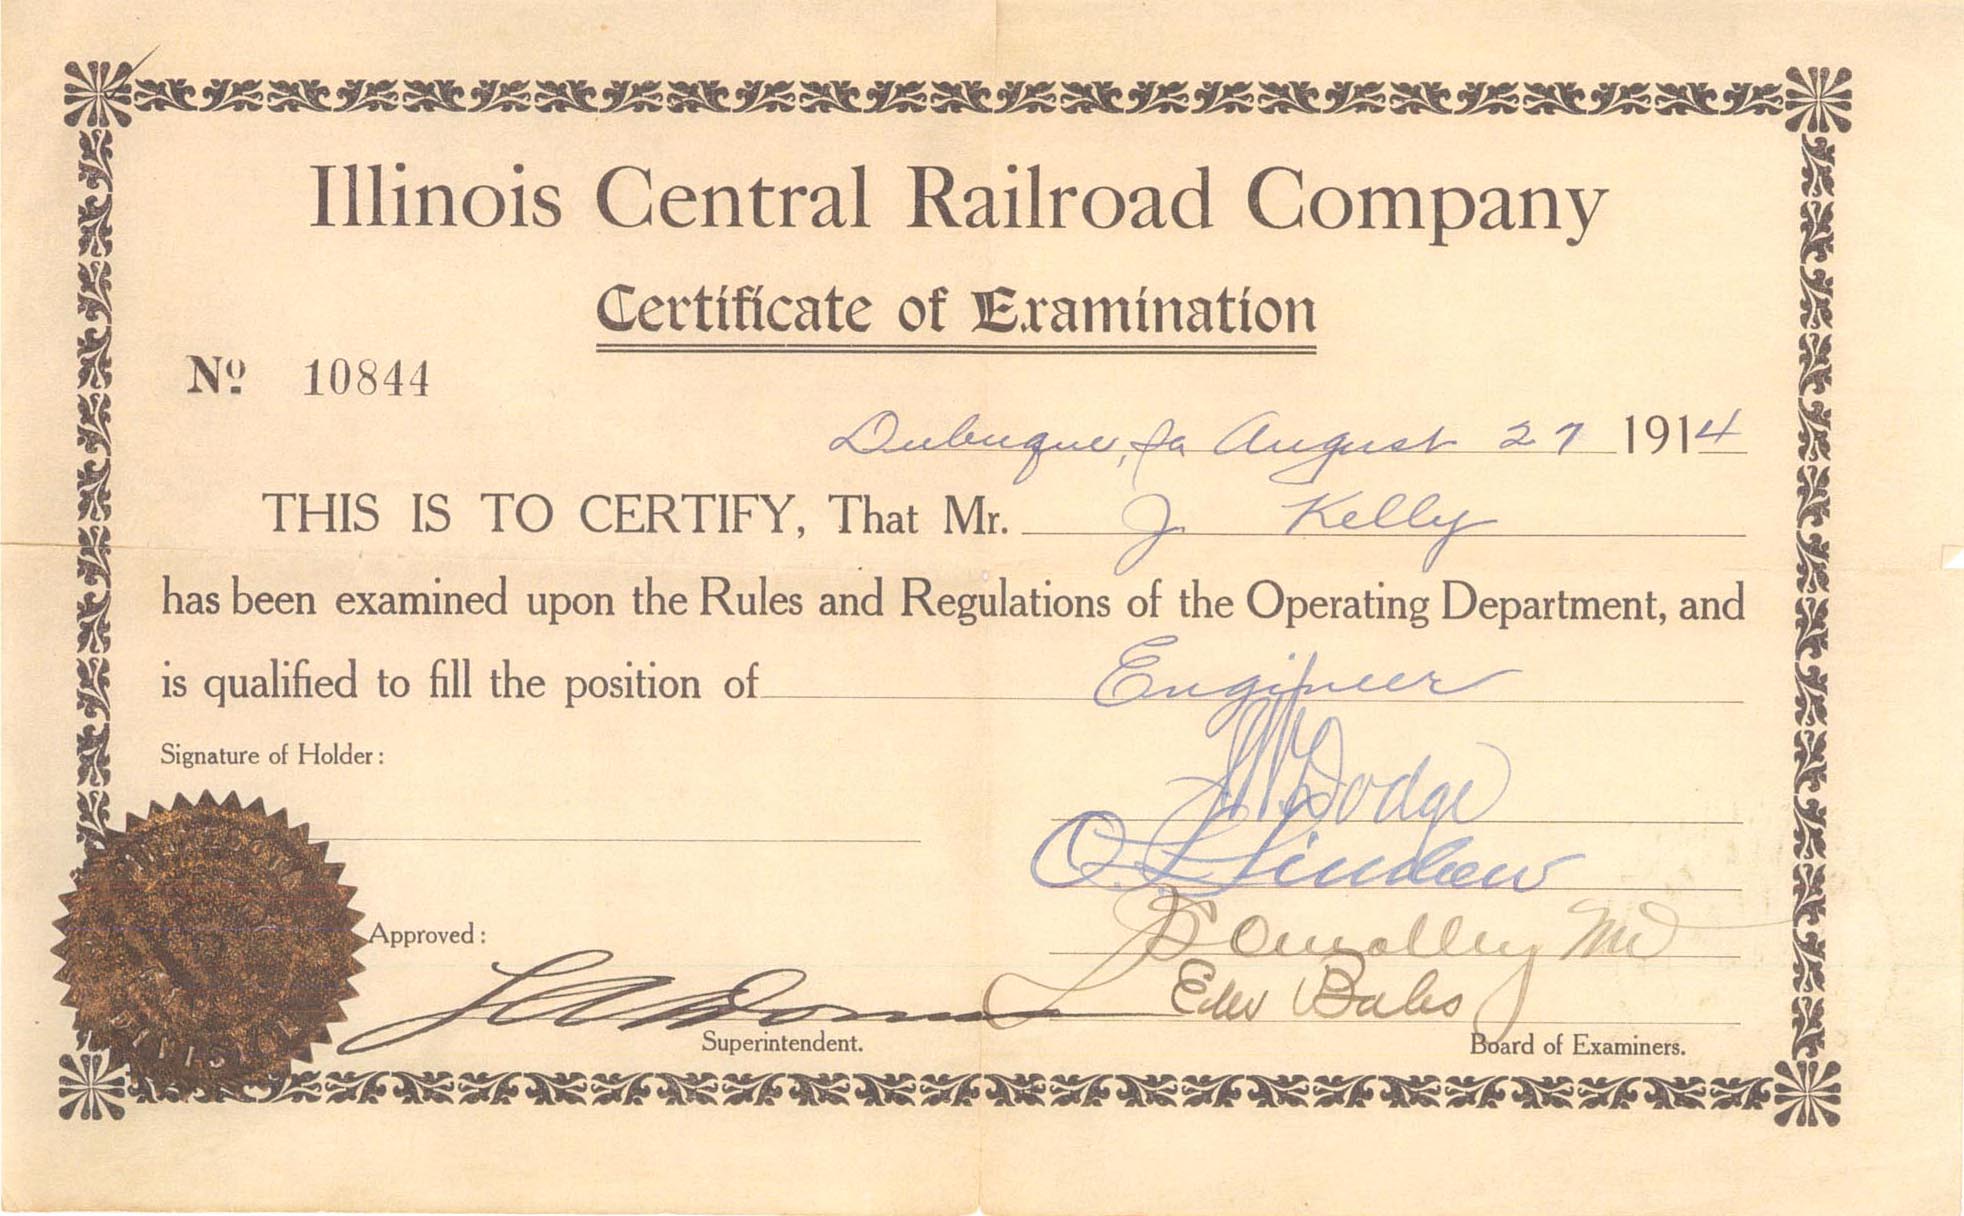 Illinois Central Railroad Company
Certificate of Examination
Nº 10844
Dubuque, Ia August 27 1914
THIS IS TO CERTIFY, That Mr. J Kelly
has been examined upon the Rules and Regulations of the Operating Department, and
is qualified to fill the position of Engineer
Signature of Holder:
Dodge
O. L. Lindrew
Approved:
Connolley MD
Bales
Superintendent.
Board of Examiners.
DIVISION